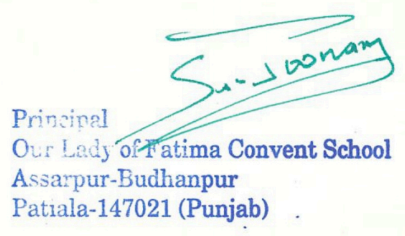 Principal
Our Lady of Fatima Convent School
Assarpur-Budhanpur
Patiala-147021 (Punjab)